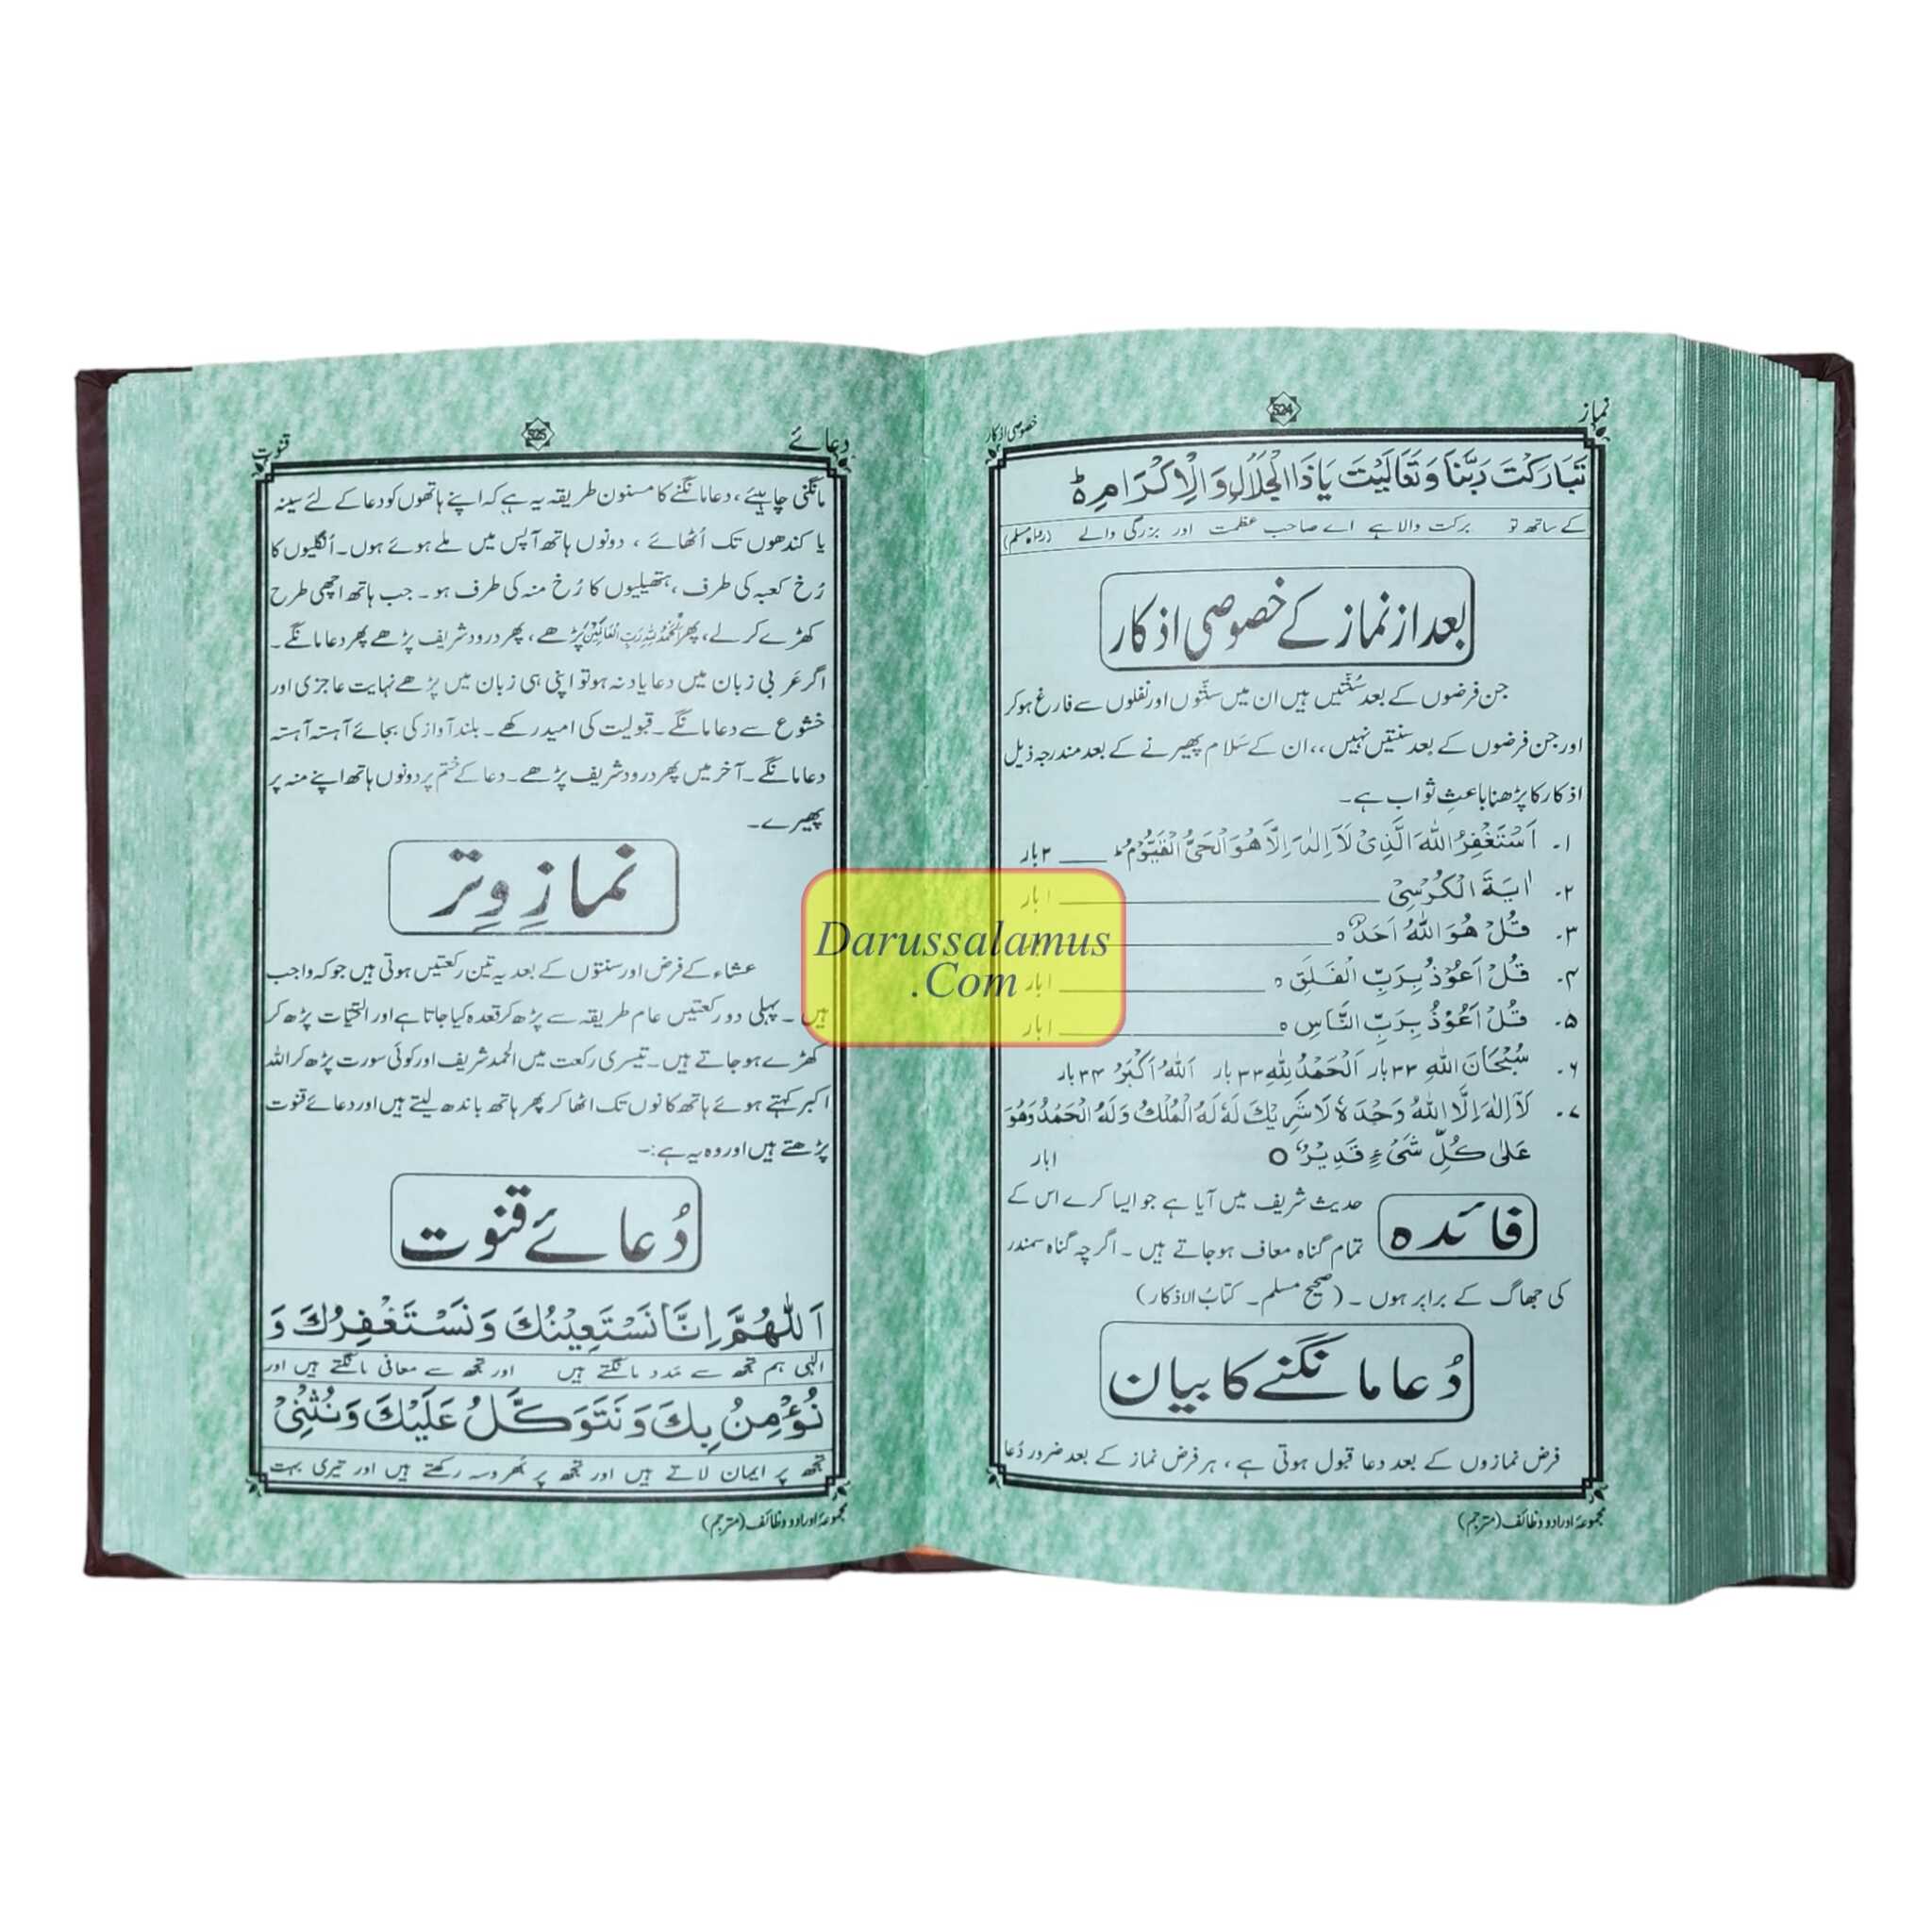 نماز
524
خصوصی اذکار
تَبَارَكْتَ رَبَّنَا وَتَعَالَيْتَ يَا ذَا الْجَلَالِ وَالْاِكْرَامِ ه
کے ساتھ تو برکت والا ہے اے صاحب عظمت اور بزرگی والے (رواہ مسلم)
بعد از نماز کے خصوصی اذکار
جن فرضوں کے بعد سُنّتیں ہیں ان میں سنّتوں اور نفلوں سے فارغ ہو کر
اور جن فرضوں کے بعد سنتیں نہیں،، ان کے سَلام پھیرنے کے بعد مندرجہ ذیل
اذکار کا پڑھنا باعثِ ثواب ہے۔
۱۔ اَسْتَغْفِرُ اللّٰهَ الَّذِىْ لَآ اِلٰهَ اِلَّا هُوَ الْحَىُّ الْقَيُّوْمُ ___ ۳ بار
۲۔ اٰيَةَ الْكُرْسِىْ ___ ۱ بار
۳۔ قُلْ هُوَ اللّٰهُ اَحَدٌ ه ___
۴۔ قُلْ اَعُوْذُ بِرَبِّ الْفَلَقِ ه ___ ۱ بار
۵۔ قُلْ اَعُوْذُ بِرَبِّ النَّاسِ ه ___ ۱ بار
۶۔ سُبْحَانَ اللّٰهِ ۳۳ بار اَلْحَمْدُ لِلّٰهِ ۳۳ بار اَللّٰهُ اَكْبَرُ ۳۴ بار
۷۔ لَآ اِلٰهَ اِلَّا اللّٰهُ وَحْدَهٗ لَا شَرِيْكَ لَهٗ لَهُ الْمُلْكُ وَلَهُ الْحَمْدُ وَهُوَ
عَلٰى كُلِّ شَىْءٍ قَدِيْرٌ ○ ۱ بار
فائدہ
حدیث شریف میں آیا ہے جو ایسا کرے اس کے
تمام گناہ معاف ہو جاتے ہیں ۔ اگرچہ گناہ سمندر
کی جھاگ کے برابر ہوں ۔ (صحیح مسلم۔ کتابُ الاذکار)
دُعا مانگنے کا بیان
فرض نمازوں کے بعد دعا قبول ہوتی ہے ، ہر فرض نماز کے بعد ضرور دُعا
مجموعۂ اوراد و وظائف (مترجم)
دعائے
525
قنوت
مانگنی چاہیئے ، دعا مانگنے کا مسنون طریقہ یہ ہے کہ اپنے ہاتھوں کو دعا کے لئے سینہ
یا کندھوں تک اُٹھائے ، دونوں ہاتھ آپس میں ملے ہوئے ہوں۔ اُنگلیوں کا
رُخ کعبہ کی طرف ، ہتھیلیوں کا رُخ منہ کی طرف ہو ۔ جب ہاتھ اچھی طرح
کھڑے کر لے، پھر اَلْحَمْدُ لِلّٰهِ رَبِّ الْعَالَمِيْنَ پڑھے ، پھر درود شریف پڑھے پھر دعا مانگے ۔
اگر عَربی زبان میں دعا یاد نہ ہو تو اپنی ہی زبان میں پڑھے نہایت عاجزی اور
خشوع سے دعا مانگے ۔ قبولیت کی امید رکھے ۔ بلند آواز کی بجائے آہستہ آہستہ
دعا مانگے ۔ آخر میں پھر درود شریف پڑھے ۔ دعا کے ختم پر دونوں ہاتھ اپنے منہ پر
پھیرے ۔
نمازِ وِتر
عشاء کے فرض اور سنتوں کے بعد یہ تین رکعتیں ہوتی ہیں جو کہ واجب
ہیں ۔ پہلی دو رکعتیں عام طریقہ سے پڑھ کر قعدہ کیا جاتا ہے اور التحیّات پڑھ کر
کھڑے ہو جاتے ہیں ۔ تیسری رکعت میں الحمد شریف اور کوئی سورت پڑھ کر اللہ
اکبر کہتے ہوئے ہاتھ کانوں تک اٹھا کر پھر ہاتھ باندھ لیتے ہیں اور دعائے قنوت
پڑھتے ہیں اور وہ یہ ہے :۔
دُعائے قنوت
اَللّٰهُمَّ اِنَّا نَسْتَعِيْنُكَ وَنَسْتَغْفِرُكَ وَ
الٰہی ہم تجھ سے مَدد مانگتے ہیں اور تجھ سے معافی مانگتے ہیں اور
نُؤْمِنُ بِكَ وَنَتَوَكَّلُ عَلَيْكَ وَنُثْنِىْ
تجھ پر ایمان لاتے ہیں اور تجھ پر بھروسہ رکھتے ہیں اور تیری بہت
مجموعۂ اوراد و وظائف (مترجم)
Darussalamus
.Com